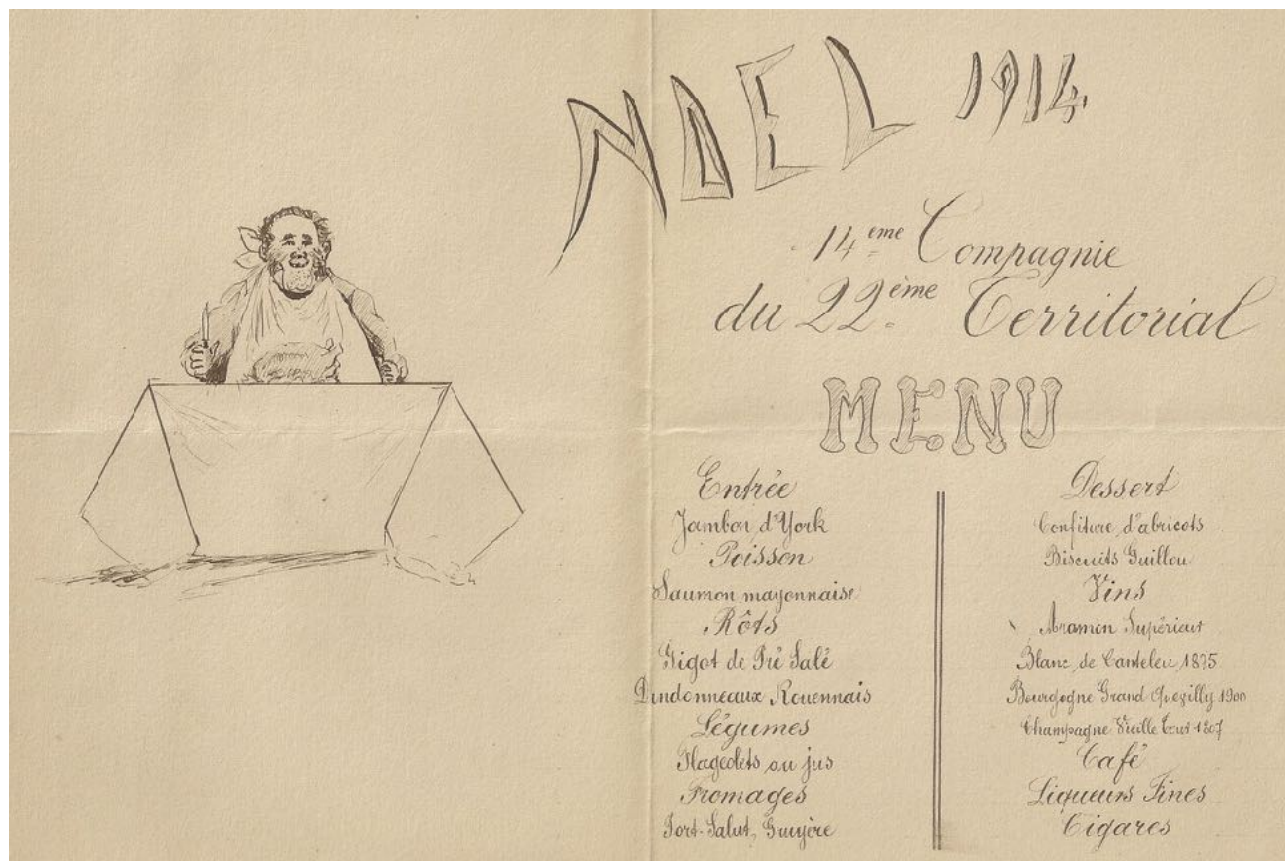 NOEL 1914
14ème Compagnie
du 22ème Territorial
MENU
Entrée
Jambon d'York
Poisson
Saumon mayonnaise
Rôts
Gigot de Pré Salé
Dindonneaux Rouennais
Légumes
Flageolets au jus
Fromages
Port-Salut, Gruyère
Dessert
Confiture d'abricots
Biscuits Guillou
Vins
Aramon Supérieur
Blanc de Canteleu 1875
Bourgogne Grand Quevilly 1900
Champagne Vieille
Café
Liqueurs Fines
Cigares